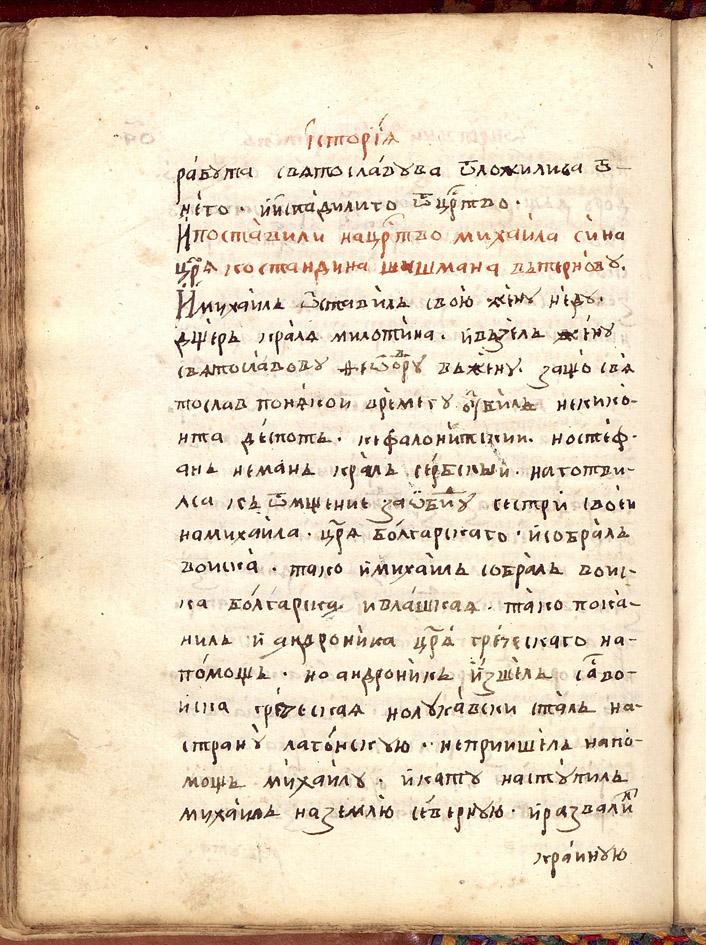 Їсторїѧ
рабꙋта свѧтославꙋва ѿложилисѧ ѿ
него · и испадилиго ѿ црⷭтво ·
И поставили на црⷭтво михаила сина
црѧ костандина шишмана въ терновꙋ.
И михаилъ ѿставилъ свою женꙋ недꙋ.
дщеръ кралѧ милотина · и взелъ женꙋ
свѧтославовꙋ ѳеѡдорꙋ въ женꙋ. защо свѧ
тослав по нѧкои времетꙋ ꙋбилъ некико-
нта деспотъ · кефалонитскии · но стеф-
анъ неманъ кралъ сербскый · наготви-
лсѧ къ ѿмщение за ѡбидꙋ сестри своеи
на михаила · црѧ болгарскаго · и собралъ
воиска · тако и михаилъ собралъ вои-
ка болгарска и влашкаѧ · тако пока-
нилъ и андроника црѧ греческаго на-
помощъ · но андроникъ изшелъ са во-
иска греческаѧ но лꙋкавски сталъ на-
странꙋ латонскꙋю · не приишелъ на по-
мощъ михаилꙋ · и кату настꙋпилъ
михаилъ на землю севернꙋю · и развалил
краинꙋю